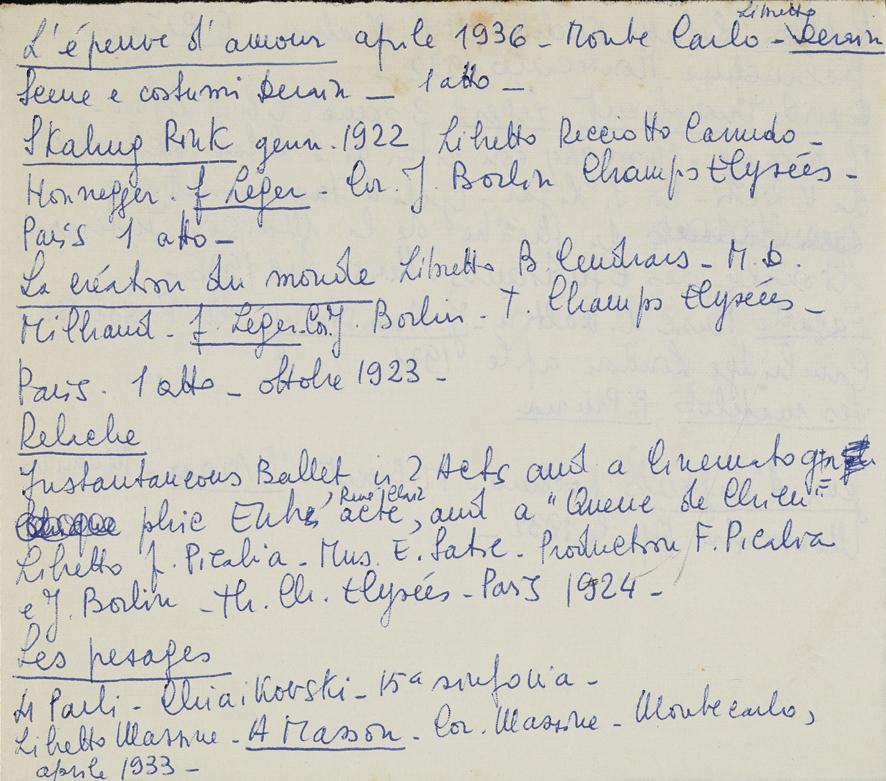 L'épeuve d'amour aprile 1936 - Monte Carlo - Libretto Derain
Scene e costumi Derain - 1 atto -
Skating Rink genn. 1922 Libretto Ricciotto Canudo -
Honnegger. f Léger Cor. J. Borlin Champs Elysées -
Paris 1 atto -
La création du monde Libretto B Cendrars - M. D.
Milhaud - f. Léger - Cor. J. Borlin - T. Champs Elysées -
Paris. 1 atto - ottobre 1923 -
Relache
Instantaneous Ballet in 2 Acts and a Cinematogra
phic Entr' acte, René Clair and a "Queue de Chien"
Libretto f. Picabia - Mus. E. Satie - Production F. Picabia
e J. Borlin - Th. Ch. Elysées - Paris 1924 -
Les pesages
4 Parti - Chiaikovski - 15a sinfonia -
Libretto Massine - A Masson - Cor. Massine - Montecarlo,
aprile 1933 -